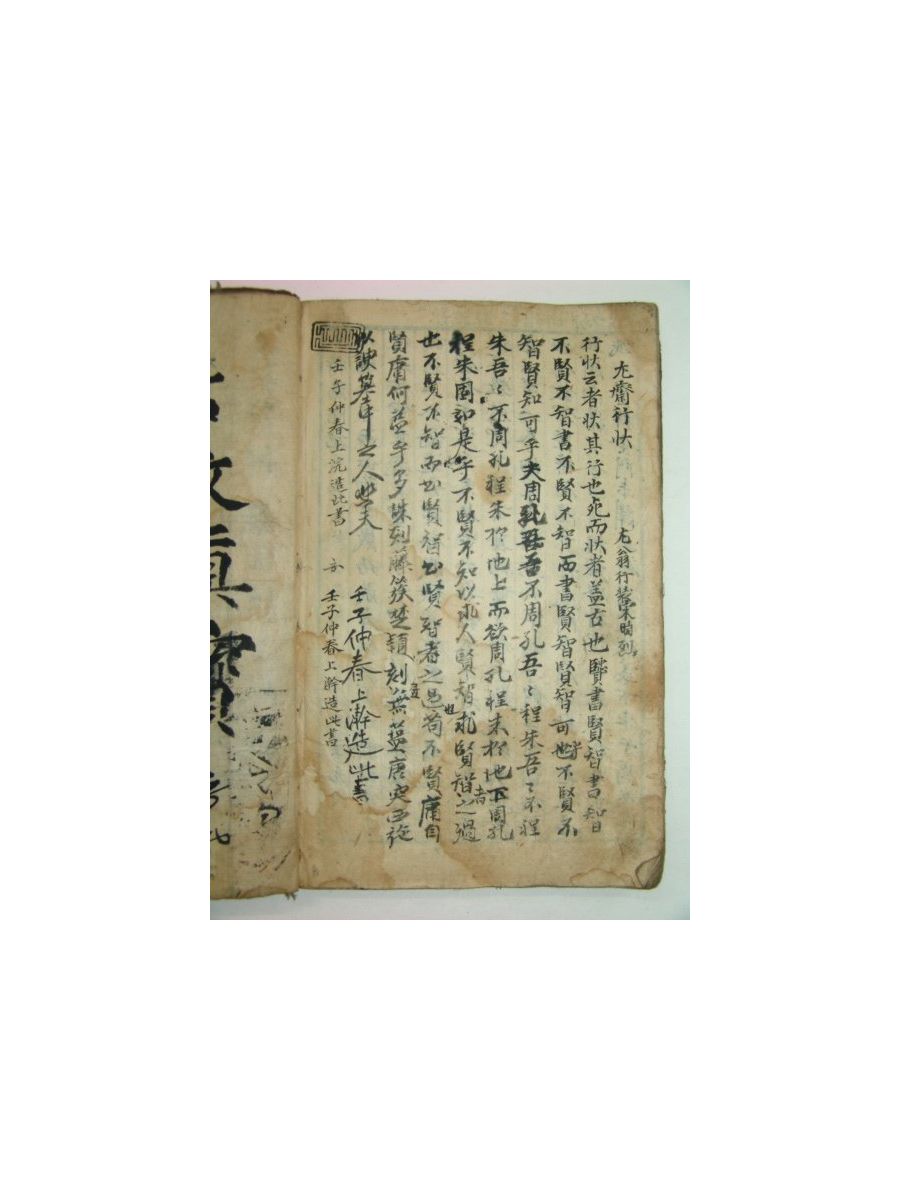 尤齋行狀 尤翁行裝宋時烈
行狀云者狀其行也死而狀者盖古也賢書賢智書知曰
不賢不智書不賢不智而書賢智賢智可也乎不賢不
智賢知可乎夫周孔吾吾不周孔吾〻程朱吾〻不程
朱吾〻不周孔程朱於地上而欲周孔程朱於地下周孔
程朱固如是乎不賢不知以求人賢智求賢智者之過
也不賢不智而書賢智書賢智者之過苟不賢庸自
賢庸何益乎多誅剡藤簇楚穎刻燕
以諛墓中之人 壬子仲春上澣造此書
壬子仲春上浣造此書 壬子仲春上澣造此書
文眞寶